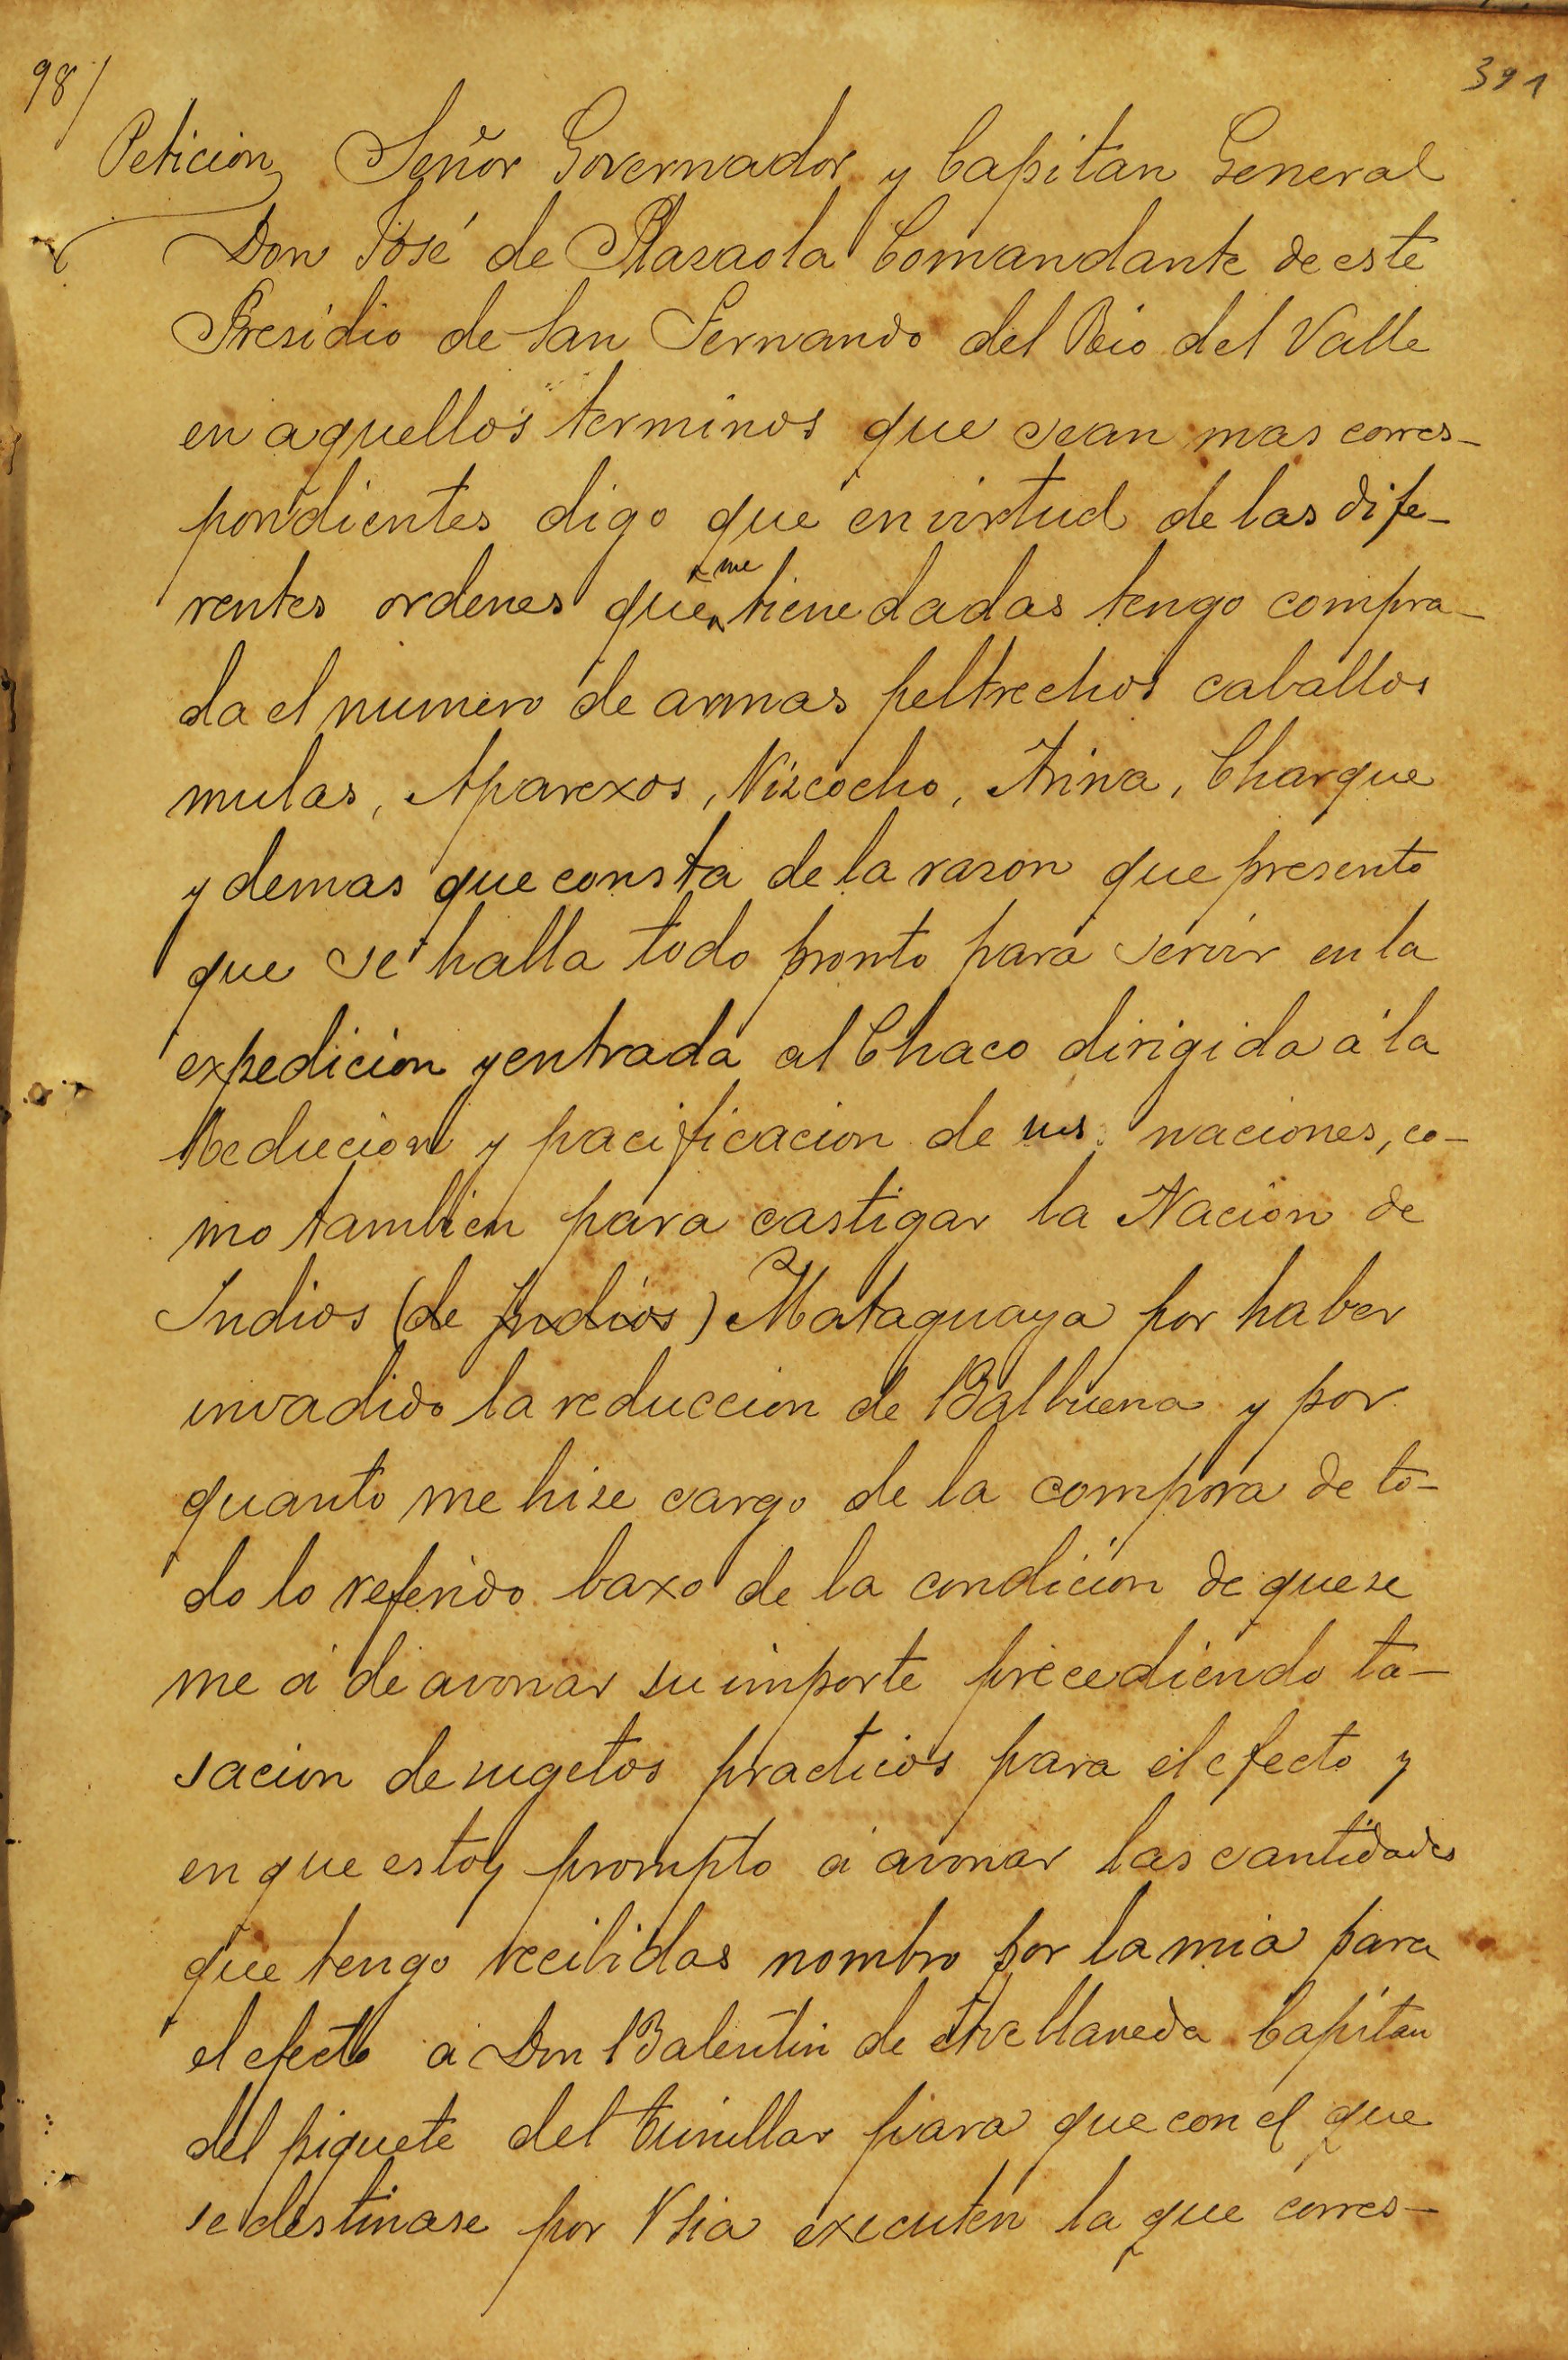 98/
391
Peticion Señor Governador y Capitan General
Don José de Plasaola Comandante de este
Presidio de San Fernando del Rio del Valle
en aquellos terminos que sean mas corres-
pondientes digo que en virtud de las dife-
rentes ordenes que me tiene dadas tengo compra-
da el numero de armas peltrechos caballos
mulas, Aparexos, Vizcocho, Arina, Charque
y demas que consta de la rason que presento
que se halla todo pronto para servir en la
expedicion y entrada al Chaco dirigida a la
Reducion y pacificacion de sus naciones, co-
mo tambien para castigar la Nacion de
Indios (de Indios) Mataguaya por haber
invadido la reduccion de Balbuena y por
quanto me hize cargo de la compra de to-
do lo referido baxo de la condicion de que se
me á de avonar su importe precediendo ta-
sacion de sugetos practicos para el efecto y
en que estoy prompto á avonar las cantidades
que tengo recibidas nombro por la mia para
el efecto a Don Balentin de Avellaneda Capitan
del piquete del Tunillar para que con el que
se destinase por Vsia executen la que corres-